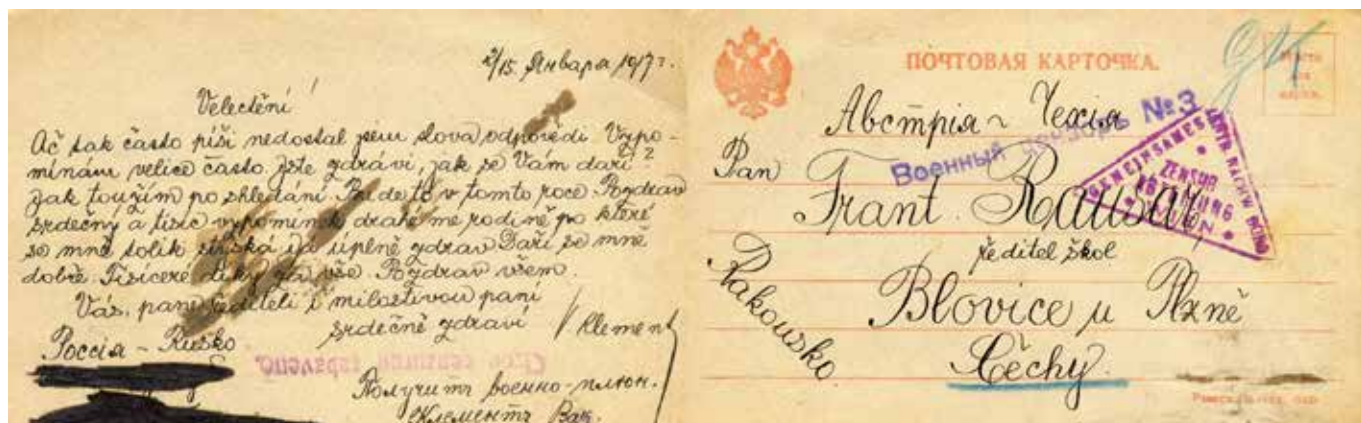 2/15. Января 1917 г.
Velectění!
Ač tak často píši nedostal jsem slova odpovědi Vzpo-
mínám velice často. Jste zdrávi, jak se Vám daří?
Jak toužím po shledání. Bude to v tomto roce. Pozdrav
srdečný a tisíc vzpomínek drahé mé rodině po které
se mně tolik stýská já úplně zdráv Daří se mně
dobře. Tisíceré díky za vše. Pozdrav všem.
Vás, pane řediteli i milostivou paní
srdečně zdraví Klement
Россія - Rusko
Получитъ военно-плѣн.
Клементъ
ПОЧТОВАЯ КАРТОЧКА.
914
Австрія - Чехія
Военный цензоръ №3
GEMEINSAMES ZENTR. NACHW. BÜRO
ZENSUR
ABTEILUNG
WIEN
Pan
Frant. Rausar,
ředitel škol
Blovice u Plzně
Čechy.
Rakousko